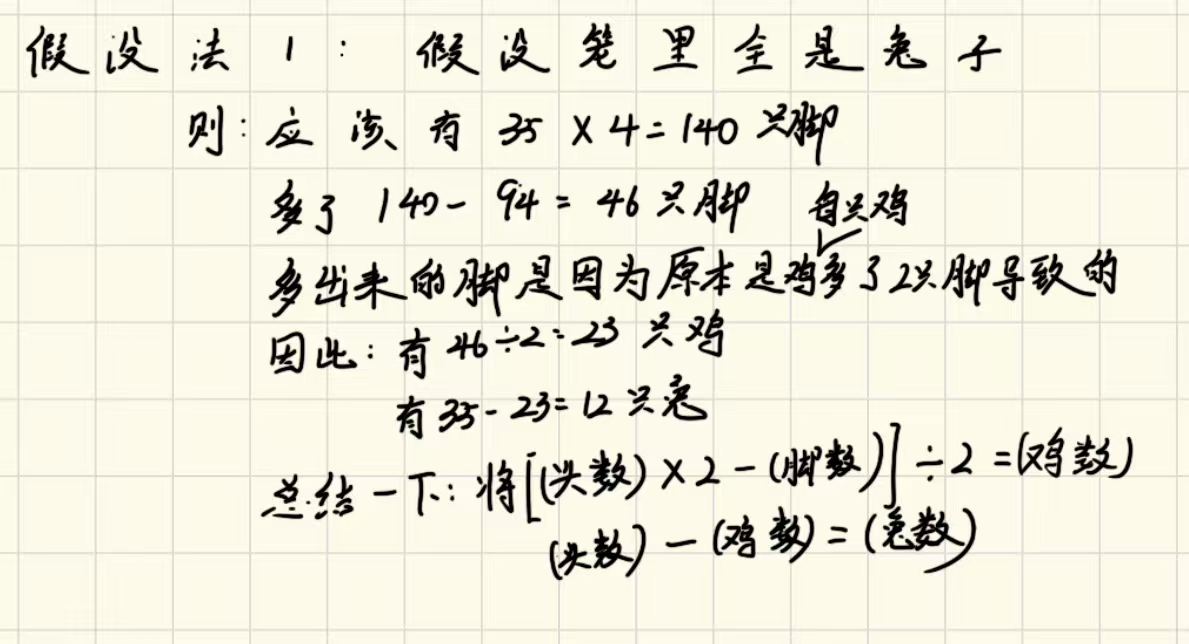 假设法1：假设笼里全是兔子
则：应该有 35×4=140 只脚
多了 140-94=46 只脚
每只鸡
多出来的脚是因为原本是鸡多了2只脚导致的
因此：有 46÷2=23 只鸡
有 35-23=12 只兔
总结一下：将[(头数)×2-(脚数)]÷2=(鸡数)
(头数)-(鸡数)=(兔数)